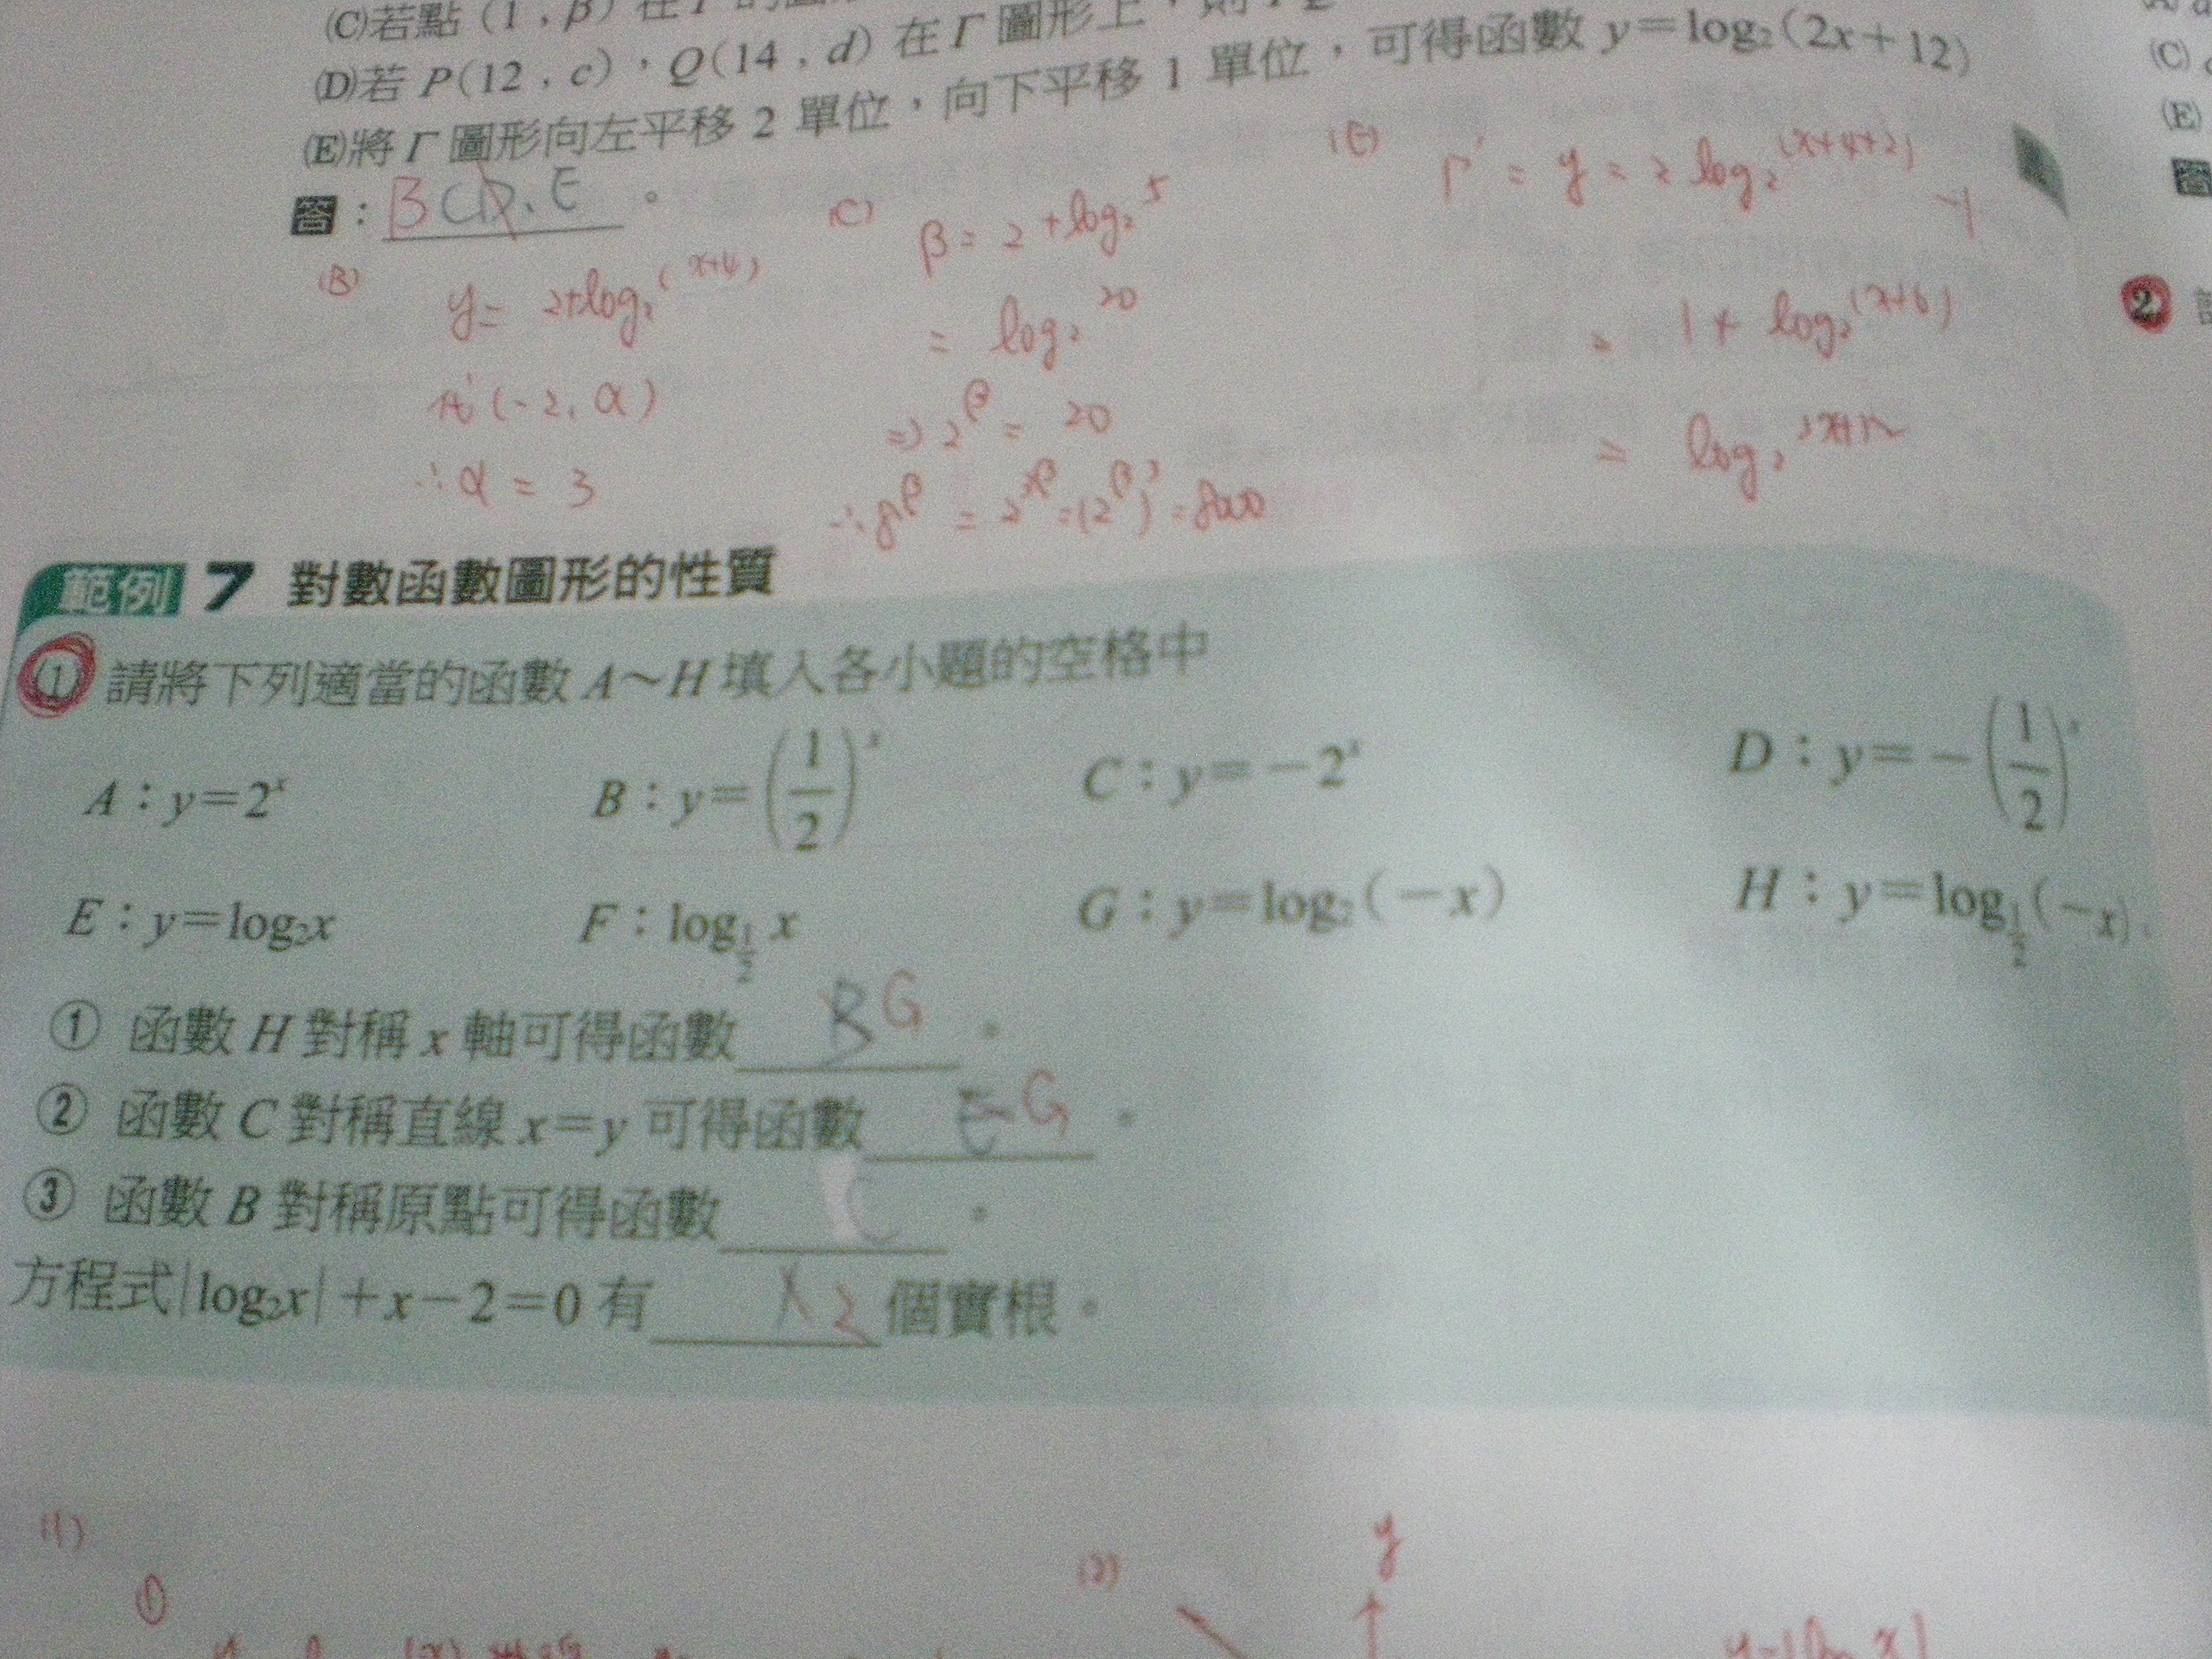 (C)若點(1,β)在Γ
(D)若P(12,c),Q(14,d)在Γ圖形上,則
(E)將Γ圖形向左平移2單位,向下平移1單位,可得函數y=log₂(2x+12)
答:BCD、E。
(B) y=2+log₂(x+4)
(-2,α)
∴α=3
(C) β=2+log₂5
=log₂20
⇒2^β=20
∴8^β=2^3β=(2^β)³=8000
(E) Γ'=y=2 log₂(x+4+2) -1
= 1+log₂(x+6)
= log₂2x+12
(C)
(E)
2
範例7 對數函數圖形的性質
(1)請將下列適當的函數A~H填入各小題的空格中
A:y=2^x B:y=(1/2)^x C:y=-2^x D:y=-(1/2)^x
E:y=log₂x F:log_{1/2}x G:y=log₂(-x) H:y=log_{1/2}(-x)
① 函數H對稱x軸可得函數 B G 。
② 函數C對稱直線x=y可得函數 E G 。
③ 函數B對稱原點可得函數 C 。
方程式|log₂x|+x-2=0有 2 個實根。
(1)
①
(2)
y